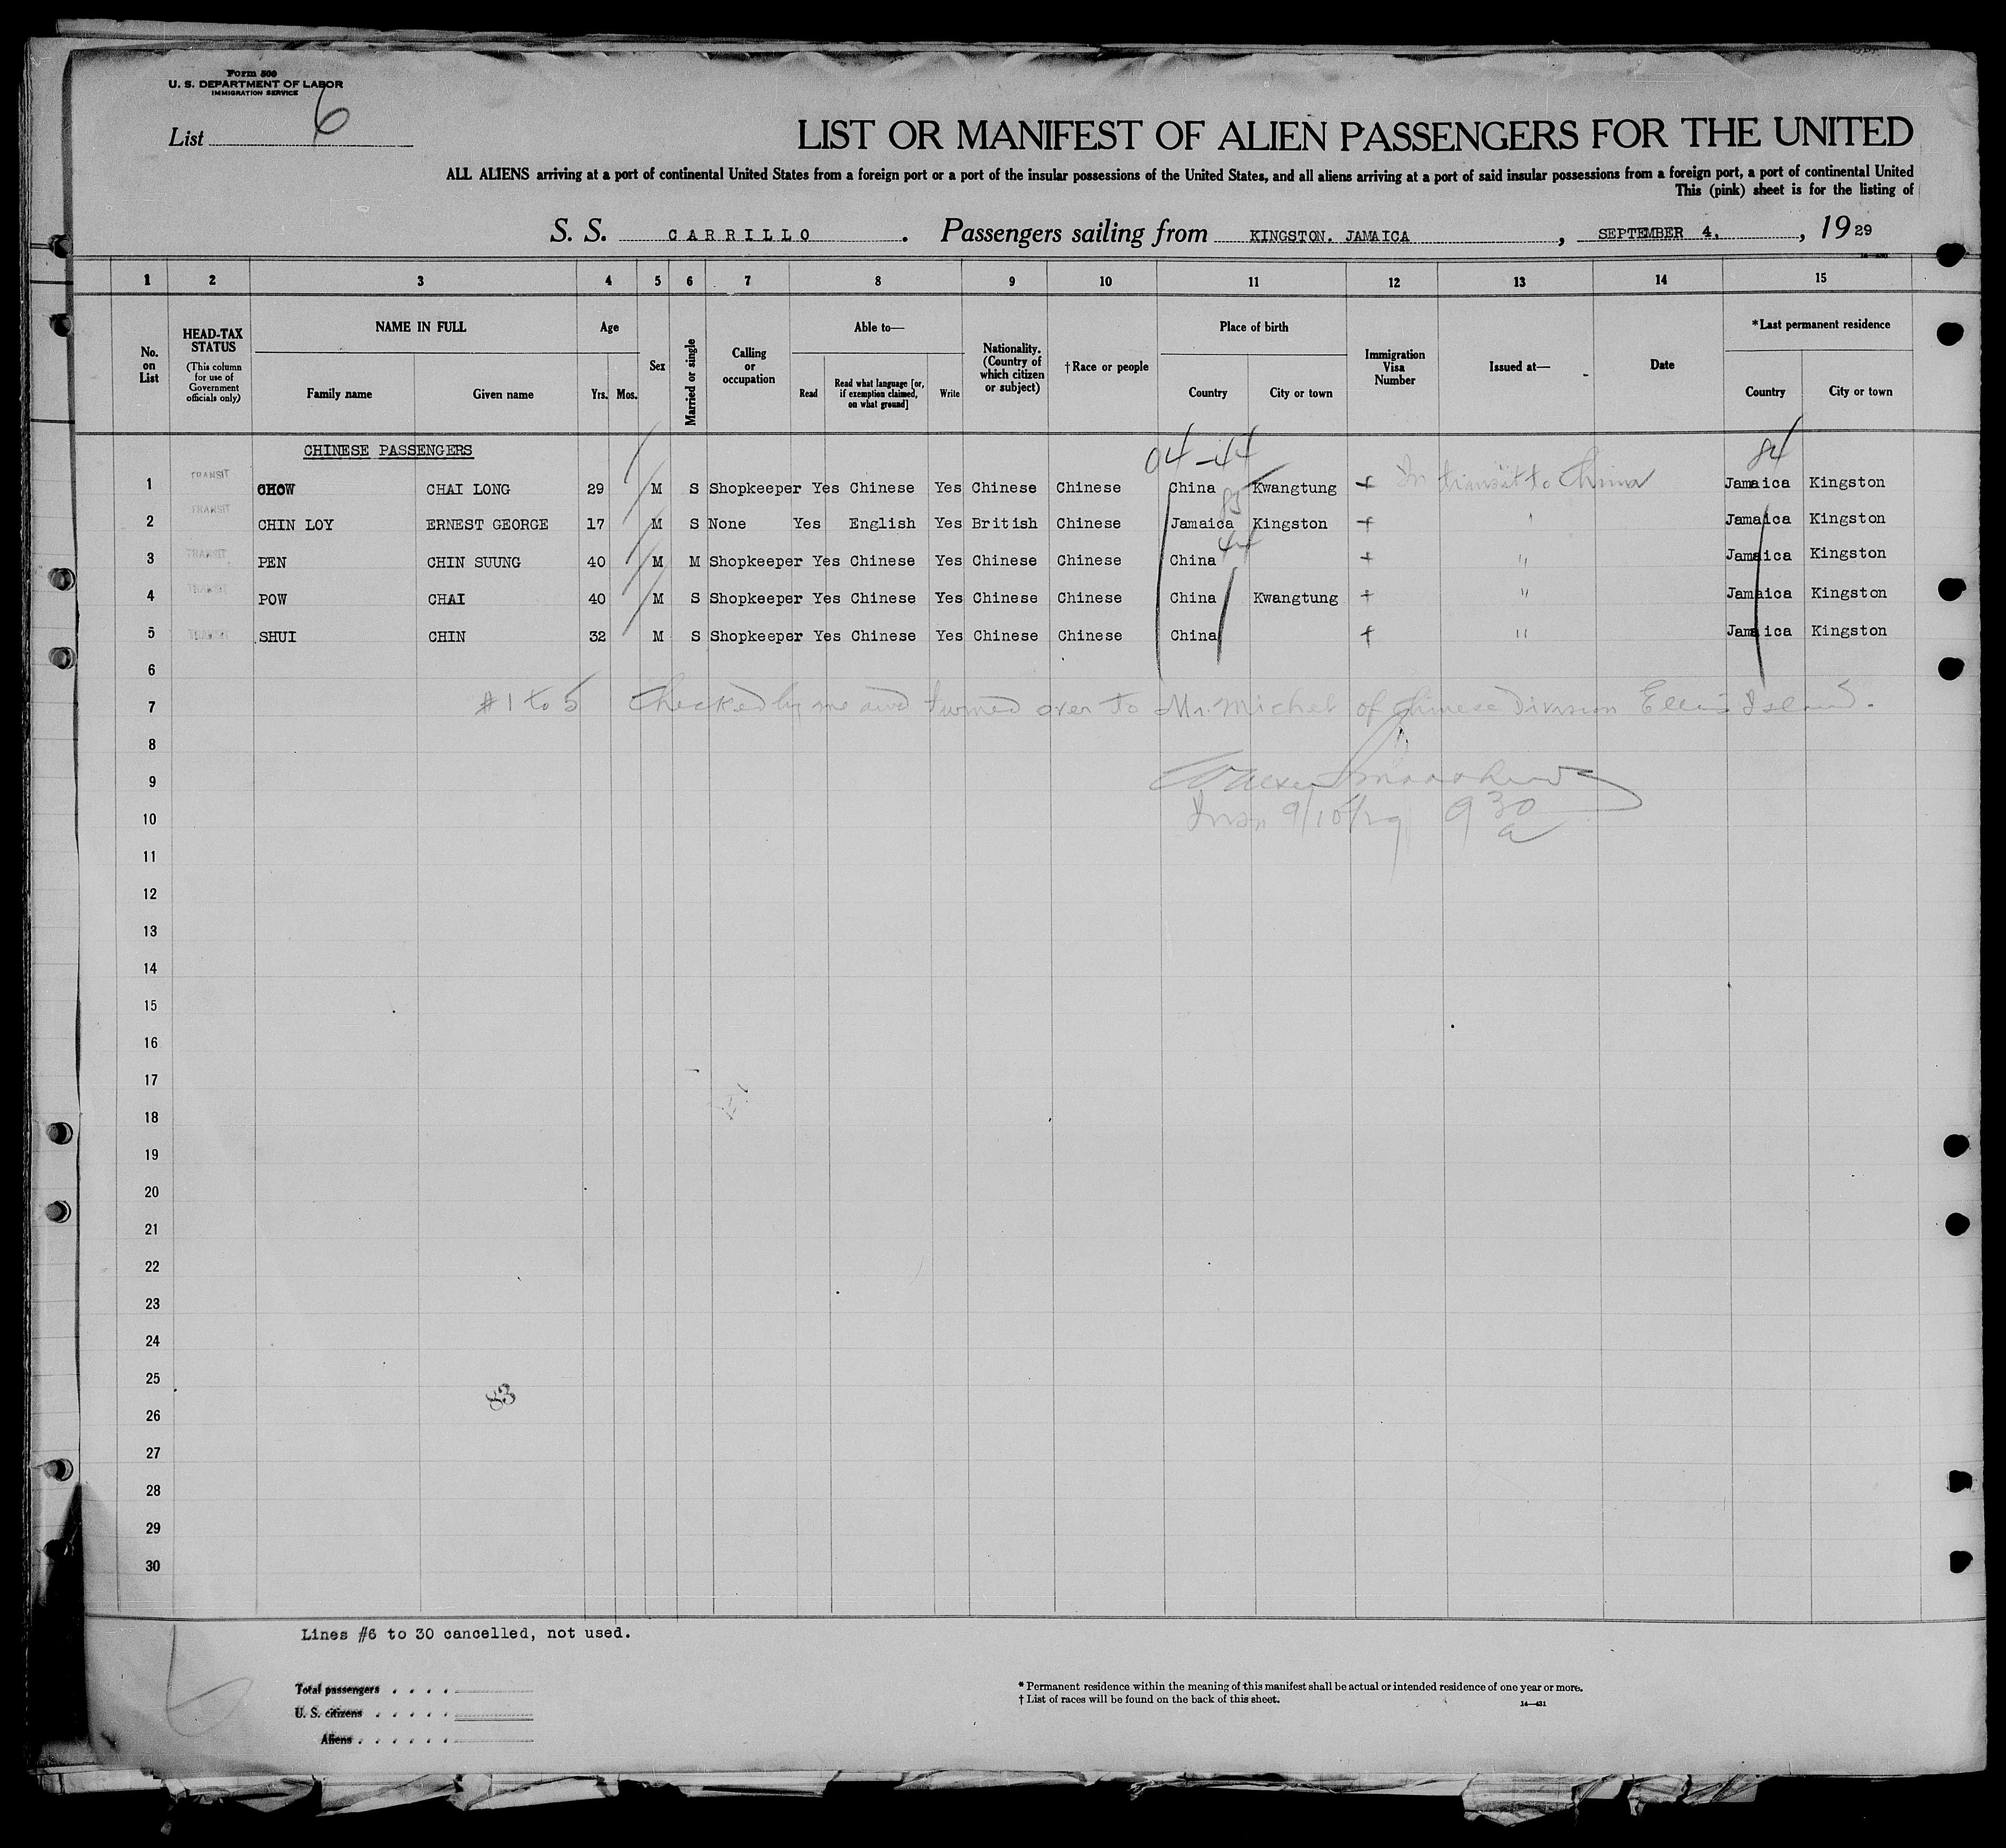 Form 500
U. S. DEPARTMENT OF LABOR
IMMIGRATION SERVICE
List 6
LIST OR MANIFEST OF ALIEN PASSENGERS FOR THE UNITED
ALL ALIENS arriving at a port of continental United States from a foreign port or a port of the insular possessions of the United States, and all aliens arriving at a port of said insular possessions from a foreign port, a port of continental United
This (pink) sheet is for the listing of
S. S. CARRILLO. Passengers sailing from KINGSTON. JAMAICA, SEPTEMBER 4., 1929
1 2 3 4 5 6 7 8 9 10 11 12 13 14 15
No. on List
HEAD-TAX STATUS
(This column for use of Government officials only)
NAME IN FULL
Family name Given name
Age
Yrs. Mos.
Sex
Married or single
Calling or occupation
Able to—
Read
Read what language [or, if exemption claimed, on what ground]
Write
Nationality. (Country of which citizen or subject)
†Race or people
Place of birth
Country City or town
Immigration Visa Number
Issued at—
Date
*Last permanent residence
Country City or town
CHINESE PASSENGERS
04-44 84
1 TRANSIT CHOW CHAI LONG 29 M S Shopkeeper Yes Chinese Yes Chinese Chinese China Kwangtung In transit to China Jamaica Kingston
85
2 TRANSIT CHIN LOY ERNEST GEORGE 17 M S None Yes English Yes British Chinese Jamaica Kingston " Jamaica Kingston
44
3 TRANSIT PEN CHIN SUUNG 40 M M Shopkeeper Yes Chinese Yes Chinese Chinese China " Jamaica Kingston
4 TRANSIT POW CHAI 40 M S Shopkeeper Yes Chinese Yes Chinese Chinese China Kwangtung " Jamaica Kingston
5 TRANSIT SHUI CHIN 32 M S Shopkeeper Yes Chinese Yes Chinese Chinese China " Jamaica Kingston
6
7 #1 to 5 Checked by me and turned over to Mr. Michel of Chinese Division Ellis Island.
8
9
10 Insp 9/10/29 9 30 a
11
12
13
14
15
16
17
18
19
20
21
22
23
24
25
83
26
27
28
29
30
Lines #6 to 30 cancelled, not used.
Total passengers
U. S. citizens
Aliens
* Permanent residence within the meaning of this manifest shall be actual or intended residence of one year or more.
† List of races will be found on the back of this sheet.
14—431